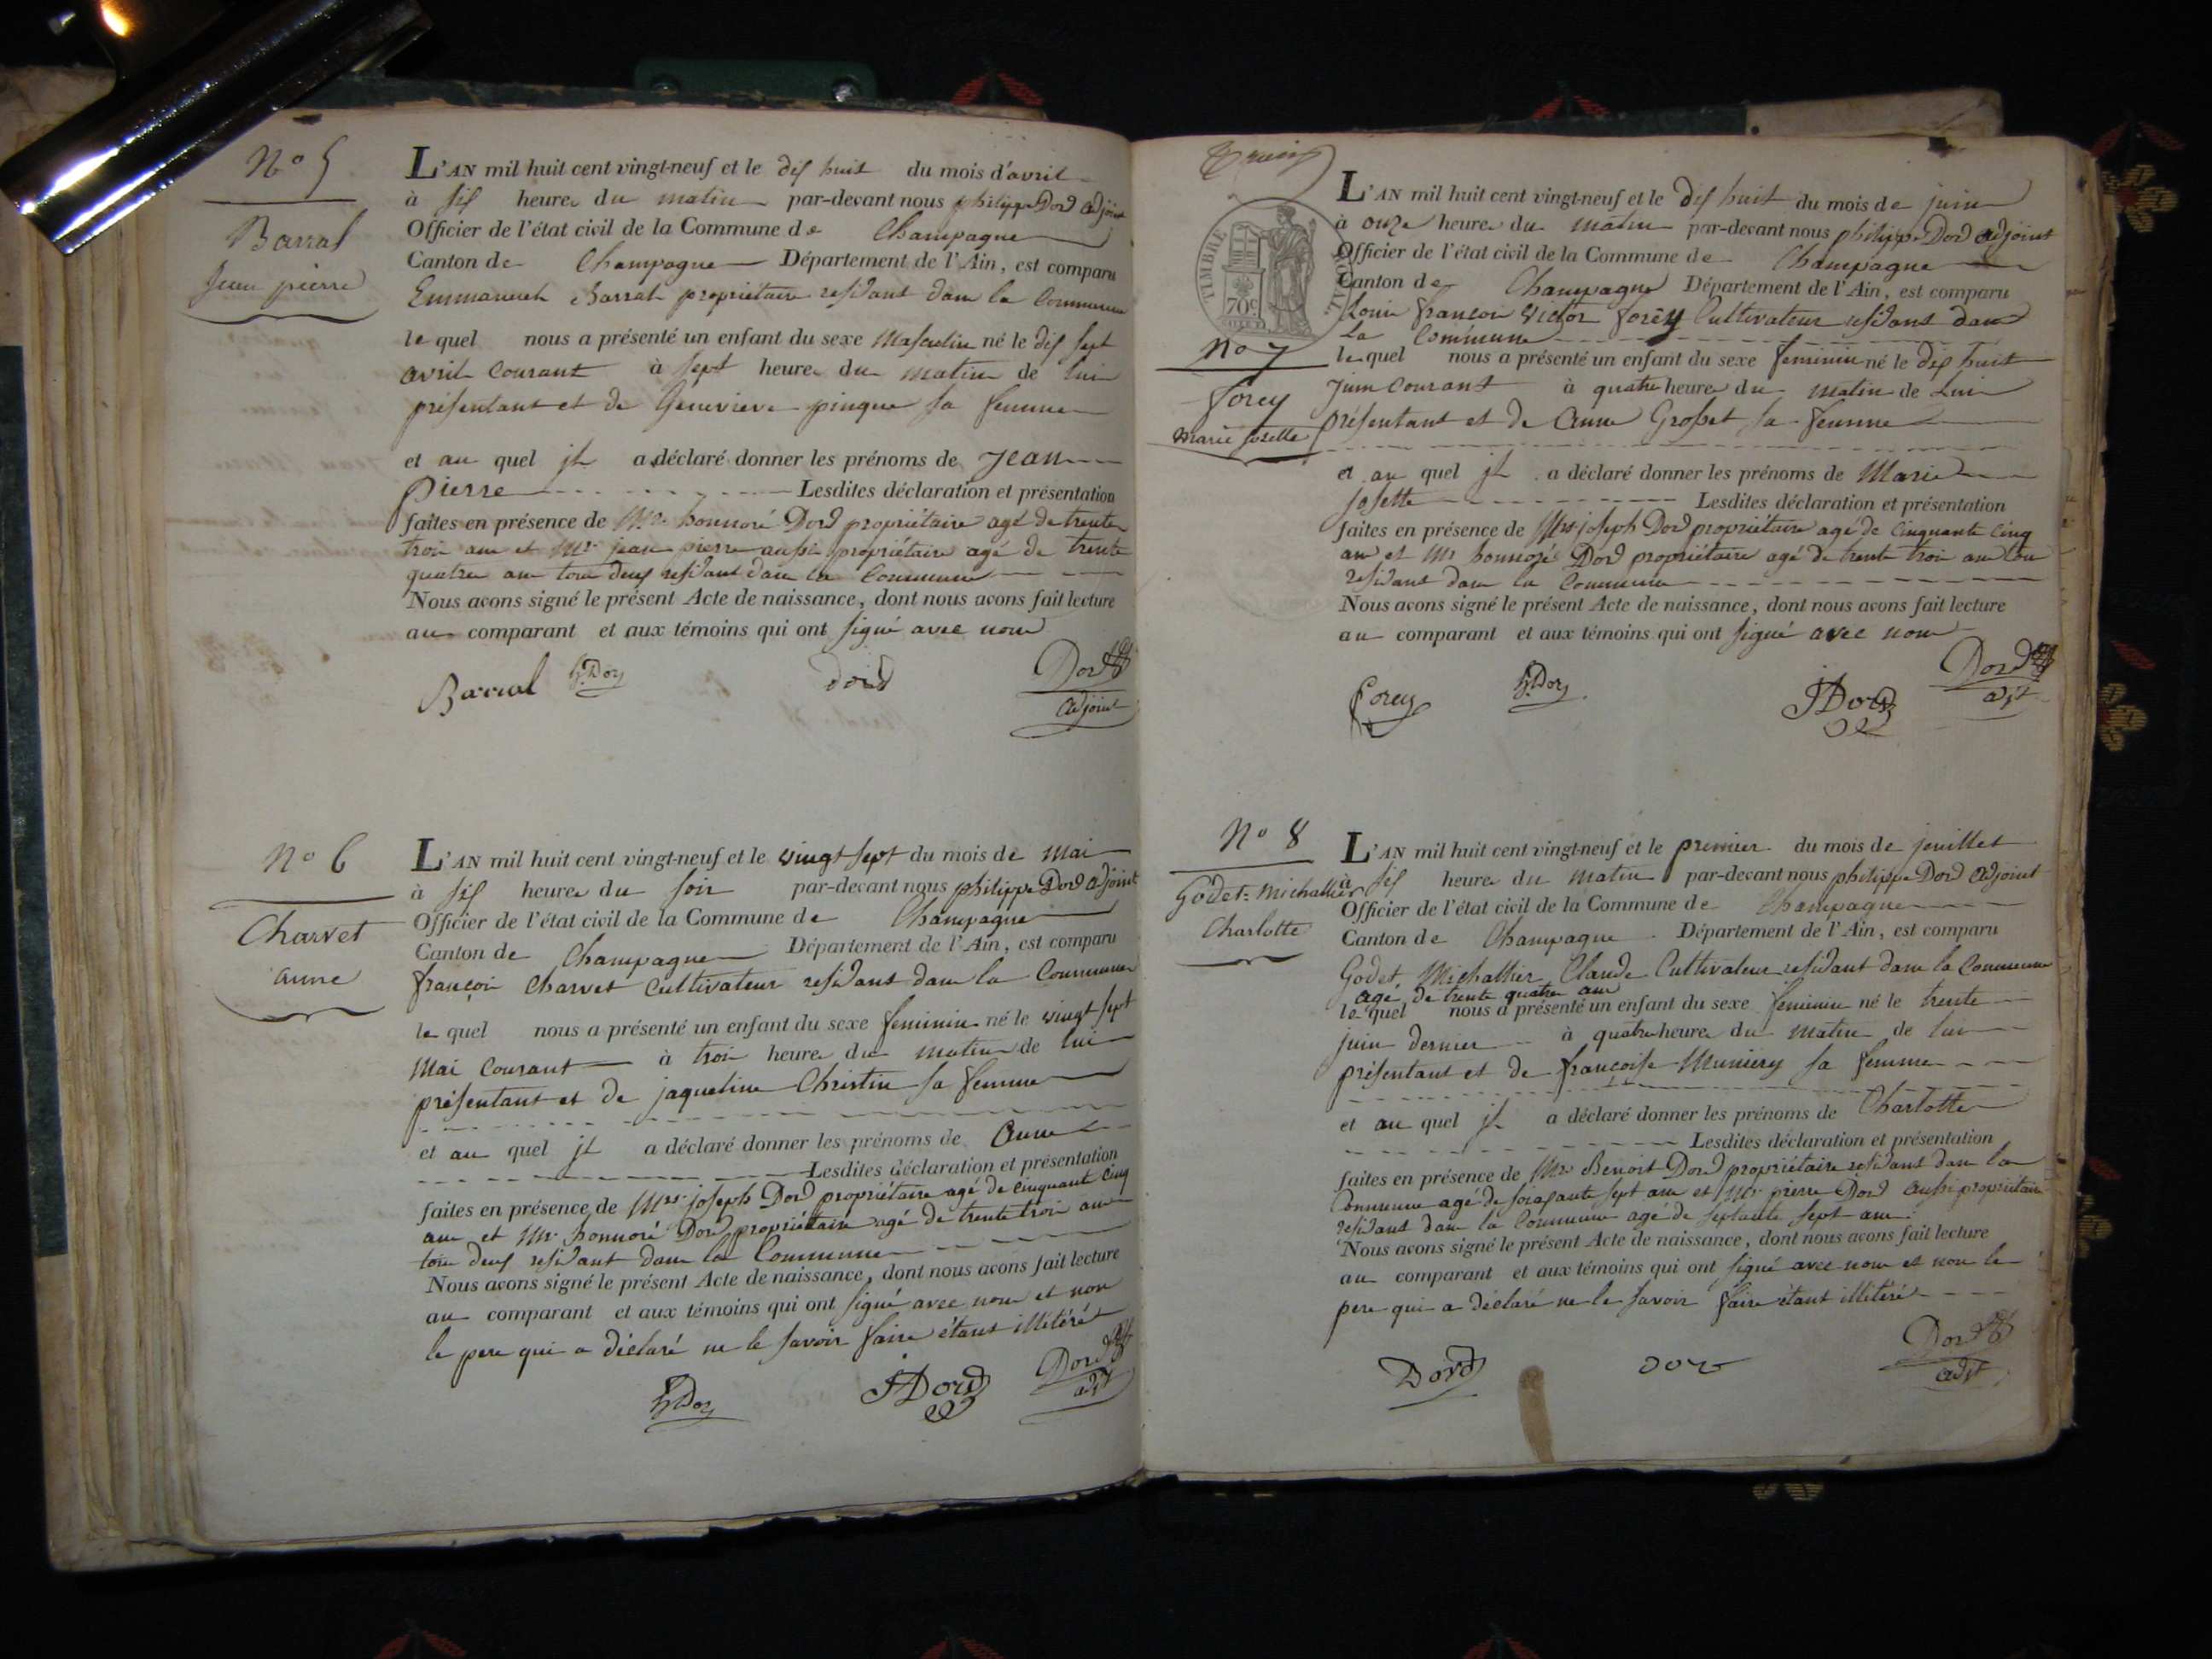 N° 5
Barral
Jean pierre
L'AN mil huit cent vingt-neuf et le dix huit du mois d'avril
à six heures du matin par-devant nous philippe Dord adjoint
Officier de l'état civil de la Commune de Champagne
Canton de Champagne Département de l'Ain, est comparu
Emmanuel Barral propriétaire residant dans la Commune
lequel nous a présenté un enfant du sexe Masculin né le dix sept
avril Courant à sept heures du matin de lui
présentant et de Genevieve pingue sa femme
et au quel il a déclaré donner les prénoms de Jean
Pierre Lesdites déclaration et présentation
faites en présence de Mr honnoré Dord propriétaire agé de trente
trois ans et Mr jean pierre aussi propriétaire agé de trente
quatre ans tous deux residant dans la Commune
Nous avons signé le présent Acte de naissance, dont nous avons fait lecture
au comparant et aux témoins qui ont signé avec nous
Barral h.Dord dord Dord
adjoint
N° 6
Charvet
anne
L'AN mil huit cent vingt-neuf et le vingt sept du mois de Mai
à six heures du soir par-devant nous philippe Dord adjoint
Officier de l'état civil de la Commune de Champagne
Canton de Champagne Département de l'Ain, est comparu
françois Charvet Cultivateur residant dans la Commune
lequel nous a présenté un enfant du sexe feminin né le vingt sept
Mai Courant à trois heures du matin de lui
présentant et de jaqueline Christin sa femme
et au quel il a déclaré donner les prénoms de Anne
Lesdites déclaration et présentation
faites en présence de Mrs joseph Dord propriétaire agé de cinquant cinq
ans et Mr honnoré Dord propriétaire agé de trente trois ans
tous deux residant dans la Commune
Nous avons signé le présent Acte de naissance, dont nous avons fait lecture
au comparant et aux témoins qui ont signé avec nous et non
le pere qui a déclaré ne le savoir faire étant illitéré
h.Dord JDord Dord
adjt
TIMBRE ROYAL
70c
N° 7
forey
Marie josette
L'AN mil huit cent vingt-neuf et le dix huit du mois de juin
à onze heures du matin par-devant nous philippe Dord adjoint
Officier de l'état civil de la Commune de Champagne
Canton de Champagne Département de l'Ain, est comparu
Louis françois Victor forey Cultivateur residant dans
La Commune
lequel nous a présenté un enfant du sexe feminin né le dix huit
Juin Courant à quatre heures du matin de Lui
présentant et de Anne Grosset sa femme
et au quel il a déclaré donner les prénoms de Marie
josette Lesdites déclaration et présentation
faites en présence de Mrs joseph Dord propriétaire agé de cinquante cinq
ans et Mr honnoré Dord propriétaire agé de trente trois ans tous
residant dans la Commune
Nous avons signé le présent Acte de naissance, dont nous avons fait lecture
au comparant et aux témoins qui ont signé avec nous
forey h.Dord JDord Dord
adjt
N° 8
Godet-Michallier
Charlotte
L'AN mil huit cent vingt-neuf et le premier du mois de jeuillet
à six heures du matin par-devant nous philippe Dord adjoint
Officier de l'état civil de la Commune de Champagne
Canton de Champagne Département de l'Ain, est comparu
Godet Michallier Claude Cultivateur residant dans la Commune
agé de trente quatre ans
lequel nous a présenté un enfant du sexe feminin né le trente
juin dernier à quatre heures du matin de lui
présentant et de françoise Muniery sa femme
et au quel il a déclaré donner les prénoms de Charlotte
Lesdites déclaration et présentation
faites en présence de Mrs Benoit Dord propriétaire residant dans la
Commune agé de soixante sept ans et Mr pierre Dord aussi propriétaire
residant dans la Commune agé de septante sept ans
Nous avons signé le présent Acte de naissance, dont nous avons fait lecture
au comparant et aux témoins qui ont signé avec nous et non le
pere qui a déclaré ne le savoir faire étant illitéré
Dord dor Dord
adjt